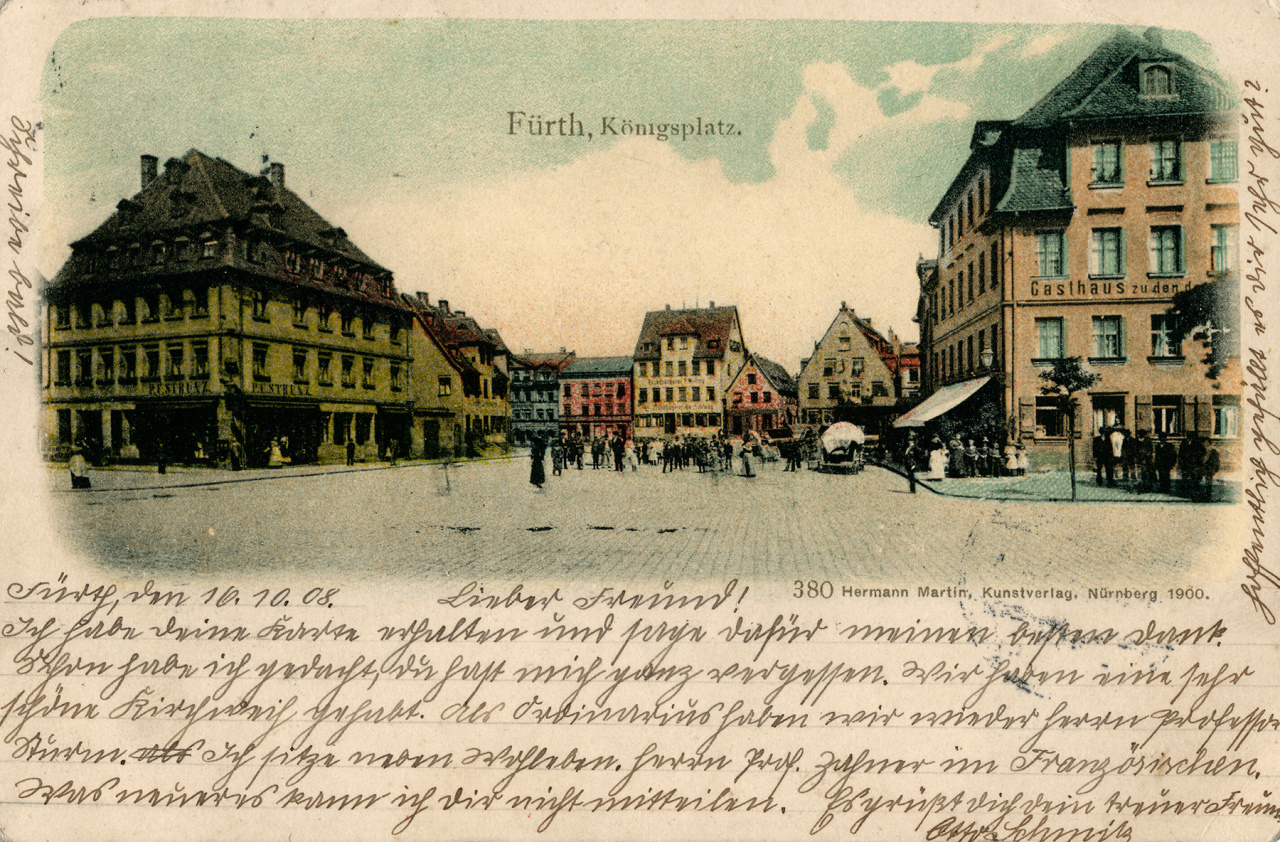 Fürth, Königsplatz.
PUSTKUAZ PUSTKUAZ
Gasthaus zu den d
380 Hermann Martin, Kunstverlag, Nürnberg 1900.
Fürth, den 16. 10. 08. Lieber Freund!
Ich habe deine Karte erhalten und sage dafür meinen besten Dank.
Schon habe ich gedacht, du hast mich ganz vergessen. Wir haben eine sehr
schöne Kirchweih gehabt. Als Ordinarius haben wir wieder Herrn Professor
Sturm. Als Ich sitze neben Wohleben. Herrn Prof. Zahner im Französischen.
Was neueres kann ich dir nicht mitteilen. Es grüßt dich dein treuer Freun
Otto Schmitz
Schreibe bald!